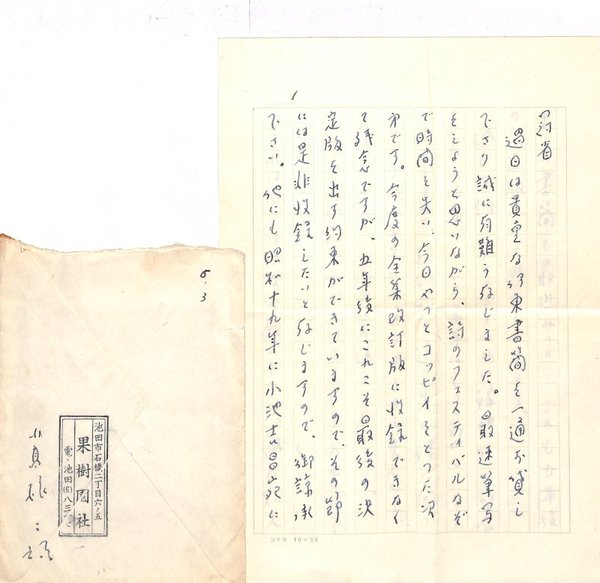 前省
過日は貴重な伊東書簡を一通お貸し
下さり誠に有難う存じました。早速筆写
をしようと思いながら、詩のフェスティバルなぞ
で時間を失い、今日やっとコッピイをとった次
第です。今度の全集改訂版に収録できなく
て残念ですが、五年後にこれこそ最後の決
定版を出す約束ができていますので、その節
には是非収録したいと存じますので、御諒承
下さい。他にも昭和十九年に小池吉昌宛に
コクヨ
5.3
池田市石橋二丁目六ノ五
果樹園社
電・池田(6)八三